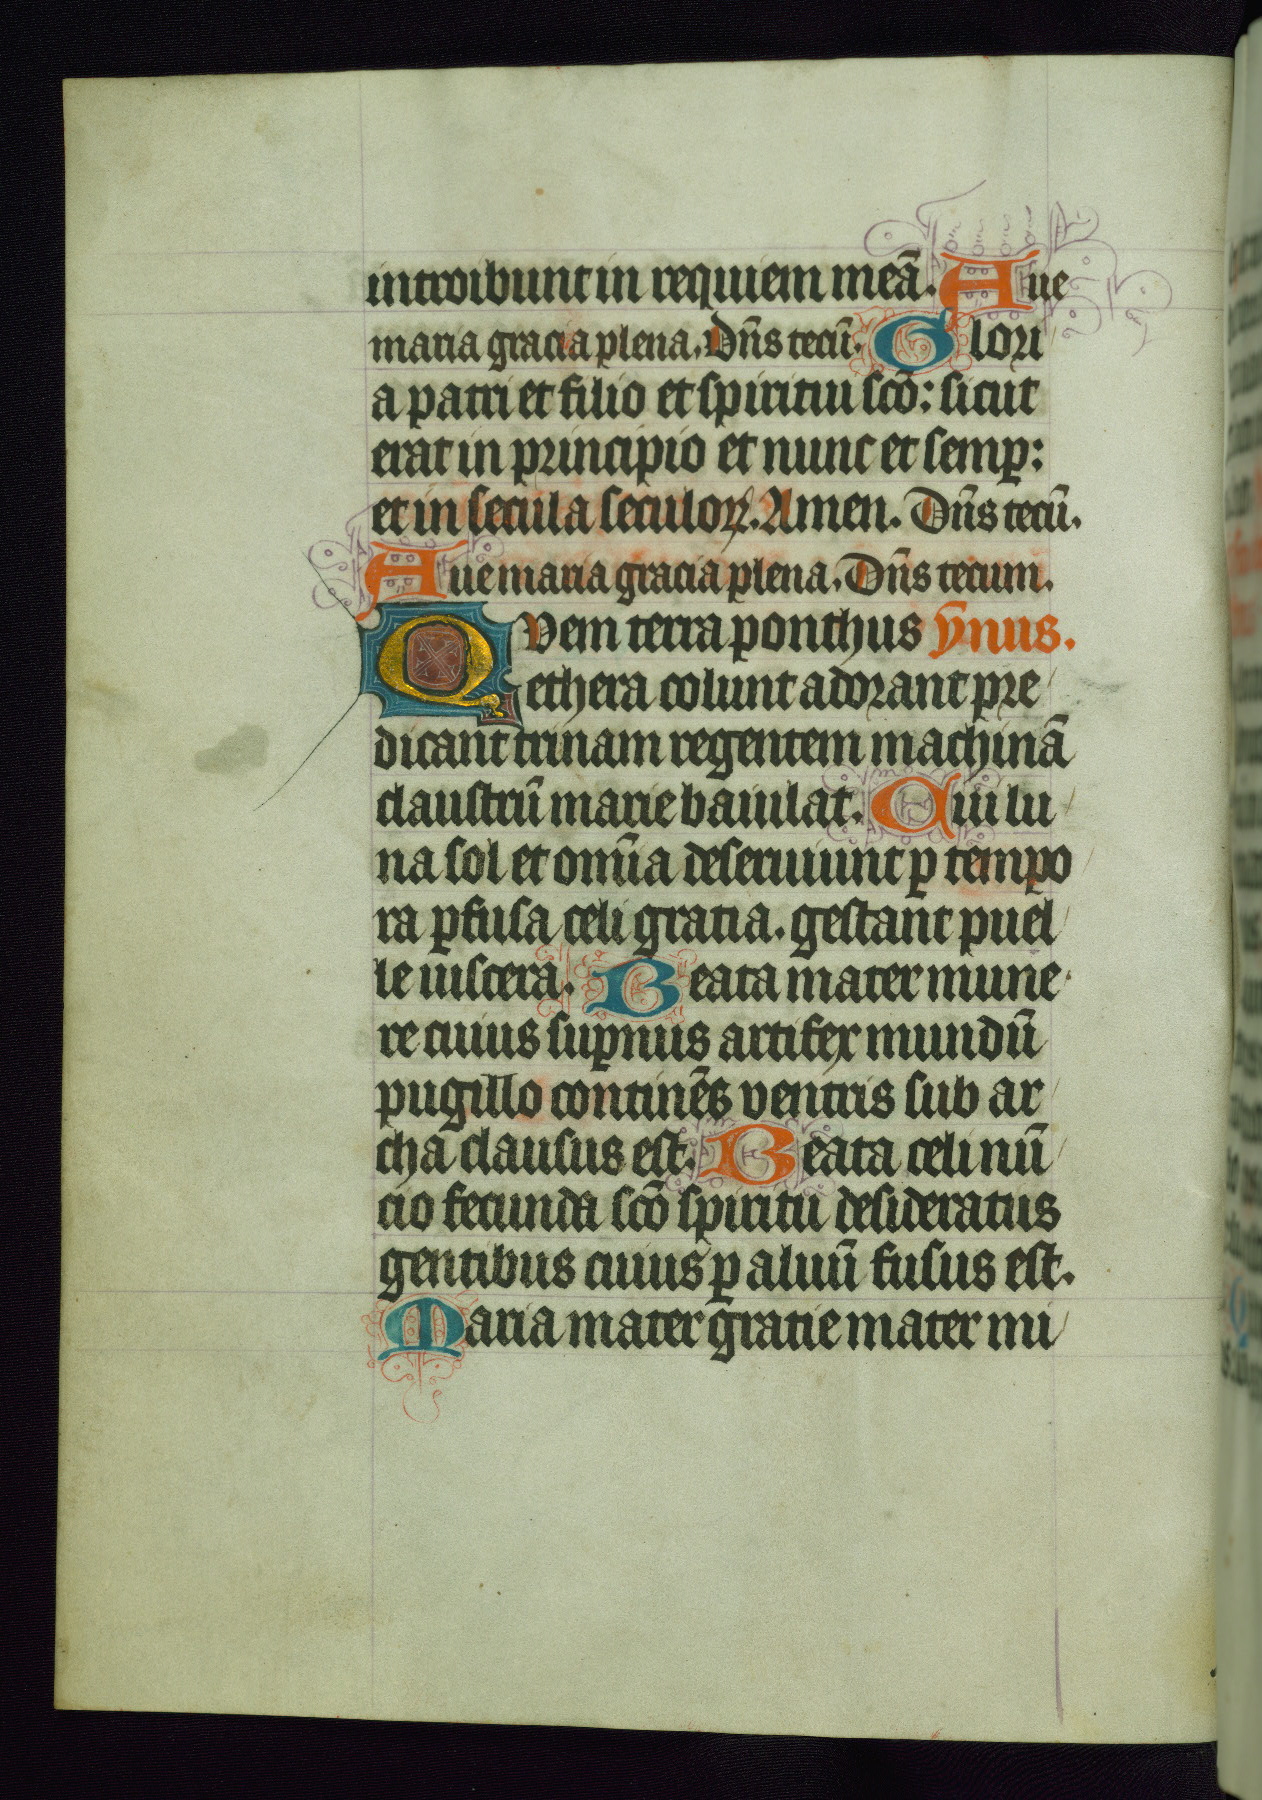 introibunt in requiem meā. Aue
maria gracia plena. Dn̄s tecū. Glori
a patri et filio et spiritui scō: sicut
erat in principio et nunc et semꝑ:
et in secula seculoꝝ. Amen. Dn̄s tecū.
Aue maria gracia plena. Dn̄s tecum.
QVem terra ponthus ȳnus.
ethera colunt adorant pre
dicant trinam regentem machinā
claustrū marie baiulat. Cui lu
na sol et om̄ia deseruiunt ꝑ tempo
ra ꝑfusa celi gratia. gestant puel
le uiscera. Beata mater mune
re cuius suꝑnus artifex mundū
pugillo continēs ventris sub ar
cha clausus est. Beata celi nū
cio fecunda scō spiritu desideratus
gentibus cuius ꝑ aluū fusus est.
Maria mater gratie mater mi